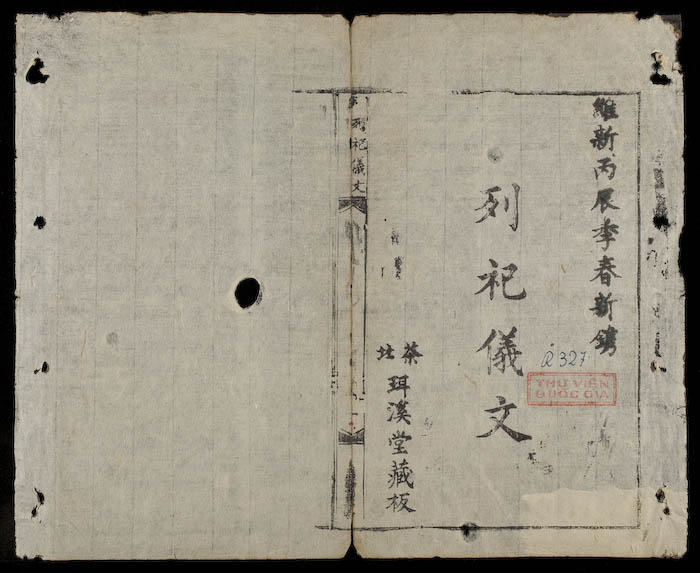 維新丙辰季春新鐫
R 327
THƯ VIỆN
QUỐC GIA
列祀儀文
茶
珥溪堂藏板
列祀儀文